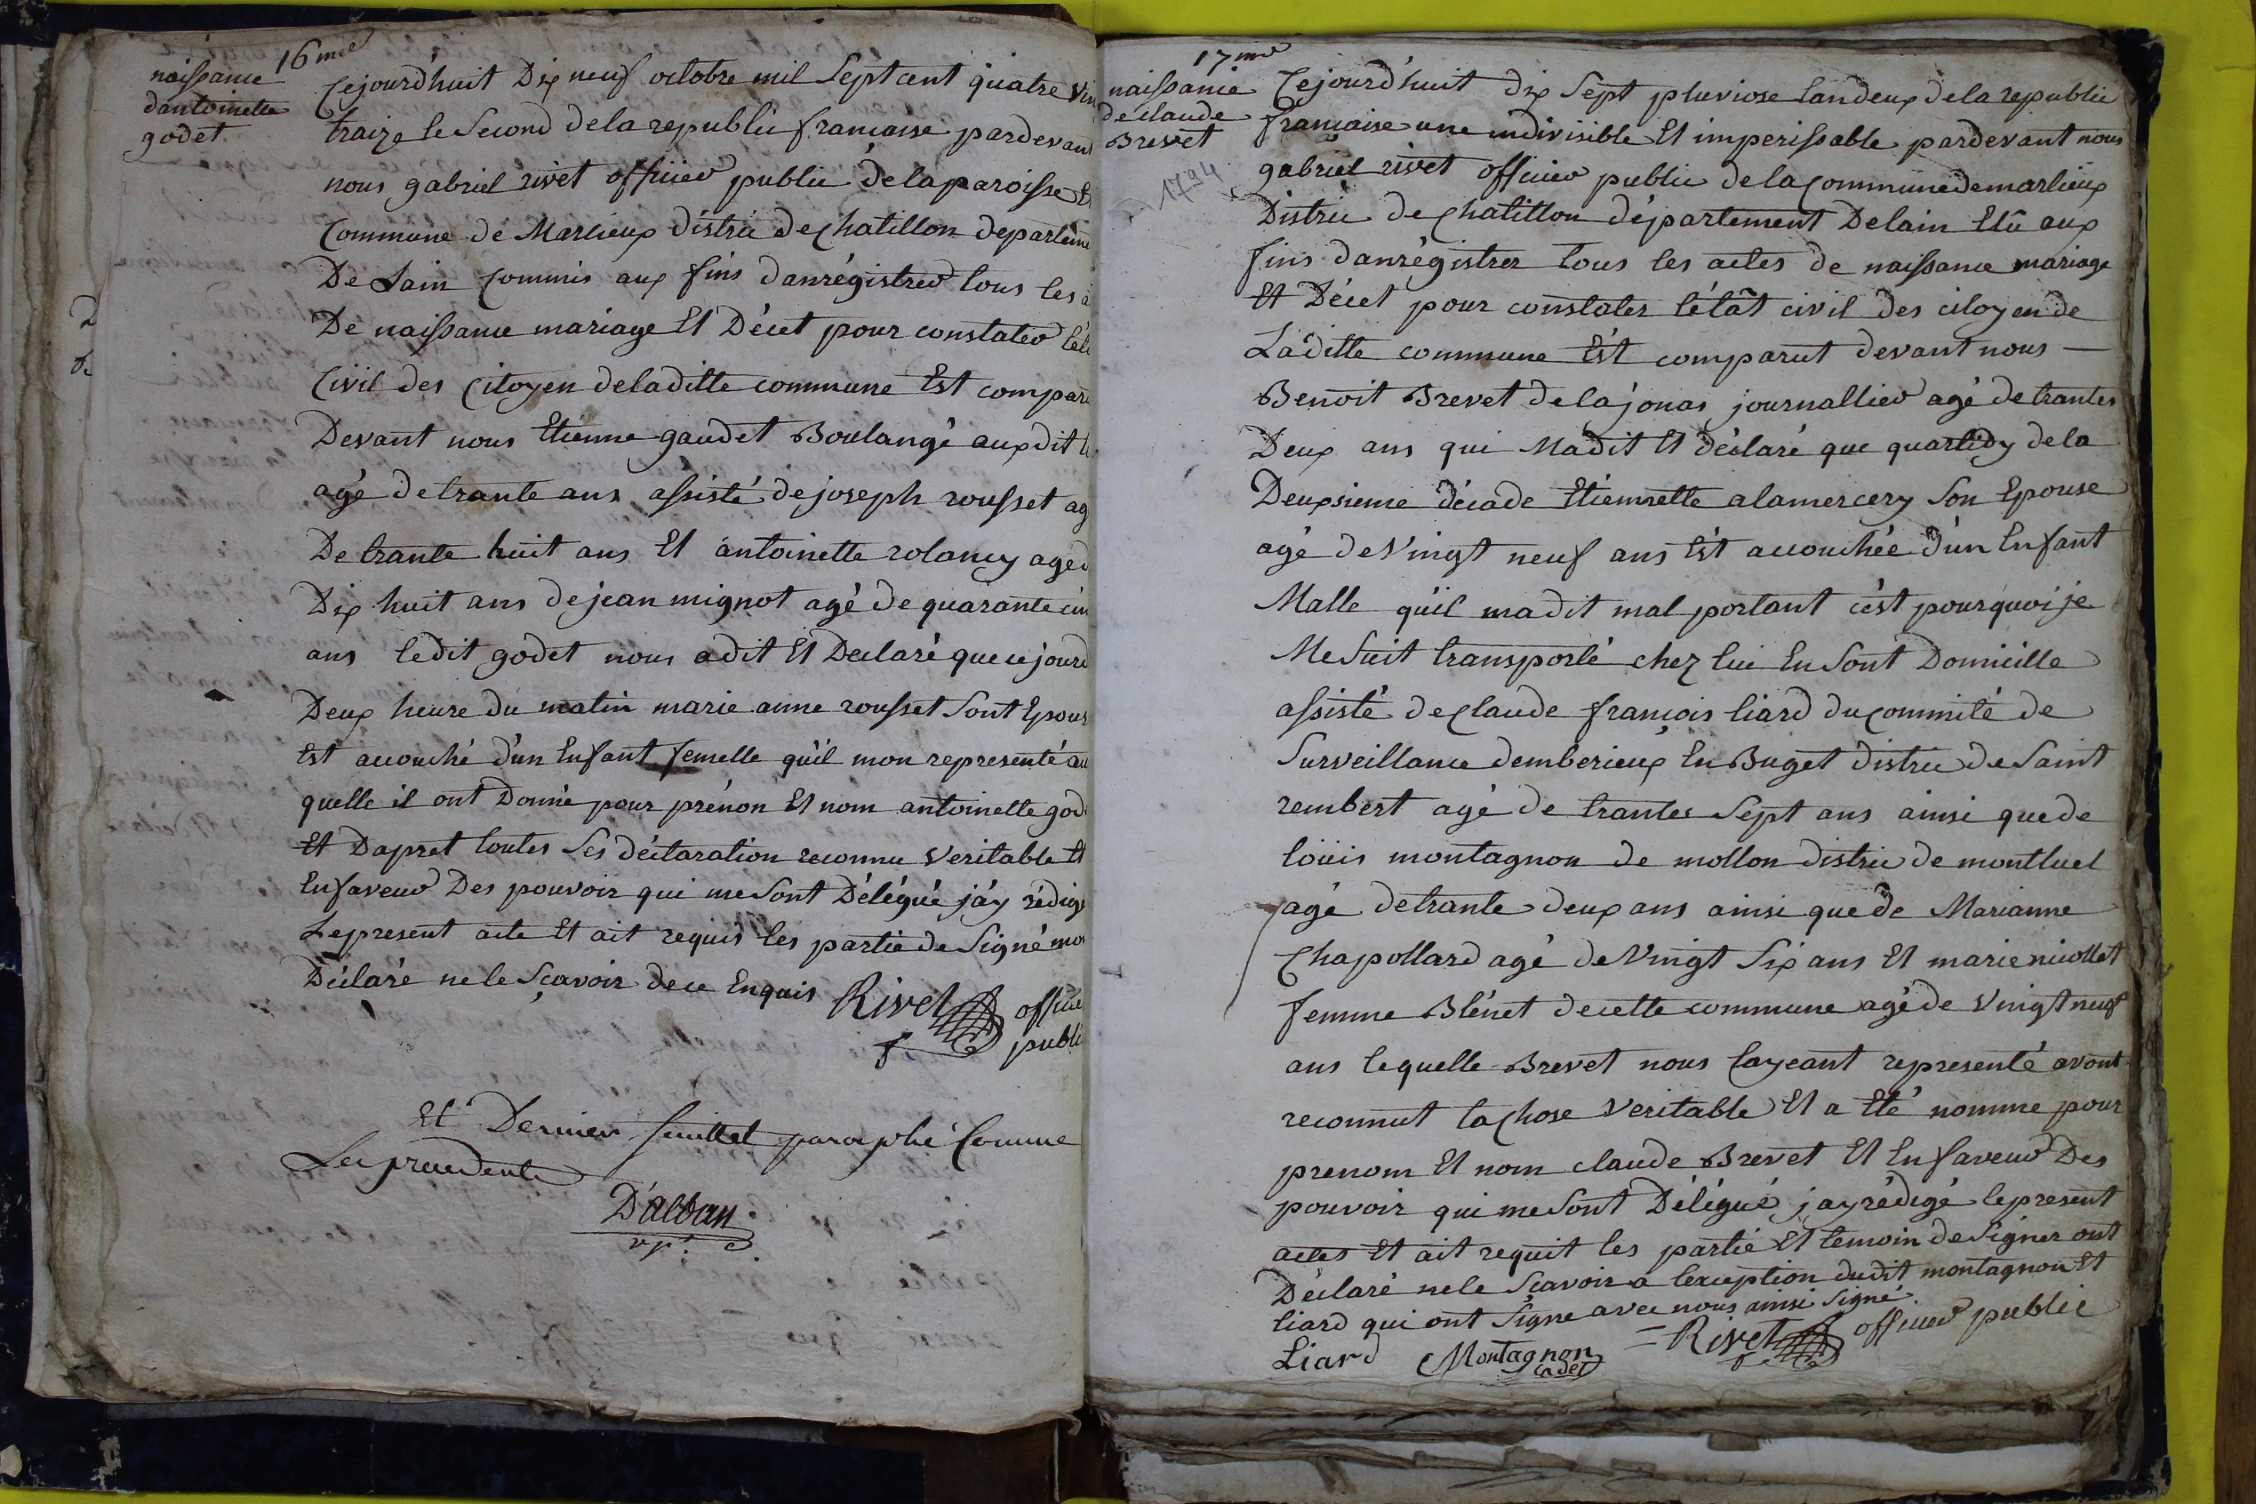 16me
naissance
dantoinette
godet
Cejourd'huit Dix neuf octobre mil Sept cent quatre vin
traize le Second de la republic francoise pardevant
nous gabriel rivet officier public de la paroisse Et
Commune de Marlieux distric de chatillon departeme
De Lain Commis aux fins danrégistrer tous les a
De naissance mariage Et Décet pour constater l'ét
Civil des Citoyen deladitte commune Est compar
Devant nous Etienne gaudet Boulangé auxdit l
agé de trante ans assisté de joseph rousset ag
De trante huit ans Et antoinette rolancy agé d
Dix huit ans de jean mignot agé de quarante cin
ans ledit godet nous adit Et Declaré que ce jourd
Deux heure du matin marie anne rousset Sont Epous
Est accouché d'un Enfant femelle qu'il mon representé au
quelle il ont Donné pour prénon Et nom antoinette god
Et Dapret toutes Ses déclaration reconnu Veritable Et
Enfaveur Des pouvoir qui me Sont Délégué j'ay rédigé
Lepresent acte Et ait requis les partie de Signé mon
Déclaré ne le Sçavoir de ce Enquis Rivet officie
public
Et Dernier feuillet paraphé Comme
Les precedents
D'alban
vp.
17me
naissance
de claude
Brevet
1794
Cejourd'huit dix Sept pluviose landeux de la republic
francoise une indivisible Et imperissable pardevant nous
gabriel rivet officier public de la Commune de marlieux
Distric de chatillon département Delain Elû aux
fins danrégistrer tous les actes de naissance mariage
Et Décet pour constater l'étât civil des citoyen de
Laditte commune Est comparut devant nous —
Benoit Brevet de la jonas journallier agé de trantes
Deux ans qui Madit Et déclaré que quartidy de la
Deuxsieme décade Etiennette alamercery Son Epouse
agé de Vingt neuf ans Est accouchée d'un Enfant
Malle qu'il madit mal portant c'est pourquoi je
Me Suit transporté chez lui En Sont Domicille
assisté de claude francois liard du Commité de
Surveillance demberieux En Buget distric de Saint
rembert agé de trantes Sept ans ainsi que de
loüis montagnon de mollon distric de montluel
agé detrante deux ans ainsi que de Marianne
Chapollard agé de Vingt Six ans Et marie nicollet
femme Blénet decette commune agé de Vingt neuf
ans lequelle Brevet nous layeant representé avont
reconnut la chose Veritable Et a Eté nomme pour
prenom Et nom claude Brevet Et Enfaveur Des
pouvoir qui me Sont Délégué j'ay rédigé lepresent
actes Et ait requit les partie Et temoin de Signer ont
Déclaré ne le Sçavoir a lexception dudit montagnon Et
liard qui ont Signe avec nous ainsi Signé.
Liard Montagnon cadet = Rivet officier public